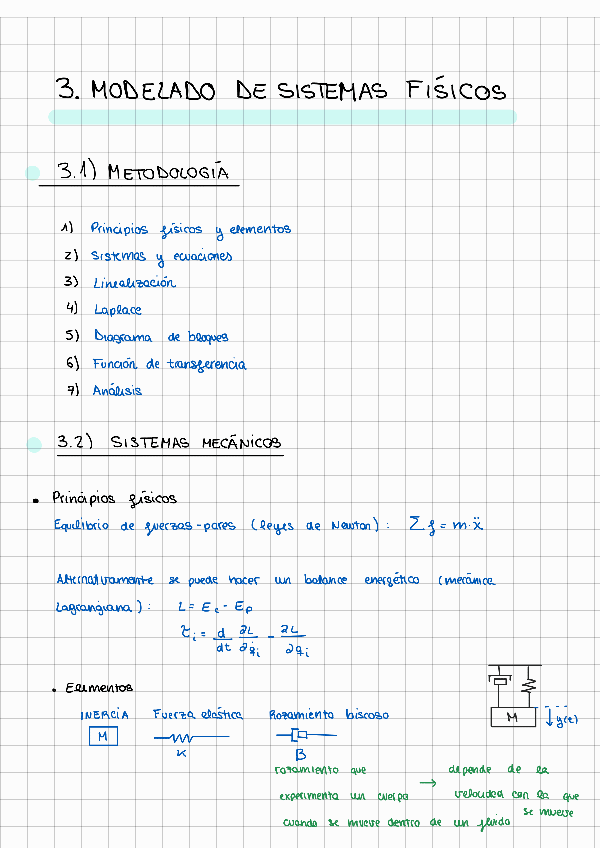 3. MODELADO DE SISTEMAS FÍSICOS
3.1) METODOLOGÍA
1) Principios físicos y elementos
2) Sistemas y ecuaciones
3) Linealización
4) Laplace
5) Diagrama de bloques
6) Función de transferencia
7) Análisis
3.2) SISTEMAS MECÁNICOS
• Principios físicos
Equilibrio de fuerzas-pares (leyes de Newton): Σ f = m·ẍ
Alternativamente se puede hacer un balance energético (mecánica
Lagrangiana): L = Ec - Ep
τi = d/dt ∂L/∂q̇i - ∂L/∂qi
• Elementos
INERCIA Fuerza elástica Rozamiento biscoso
M
K
B
M ↓ y(t)
rozamiento que → depende de la
experimenta un cuerpo velocidad con la que
cuando se mueve dentro de un fluido se mueve